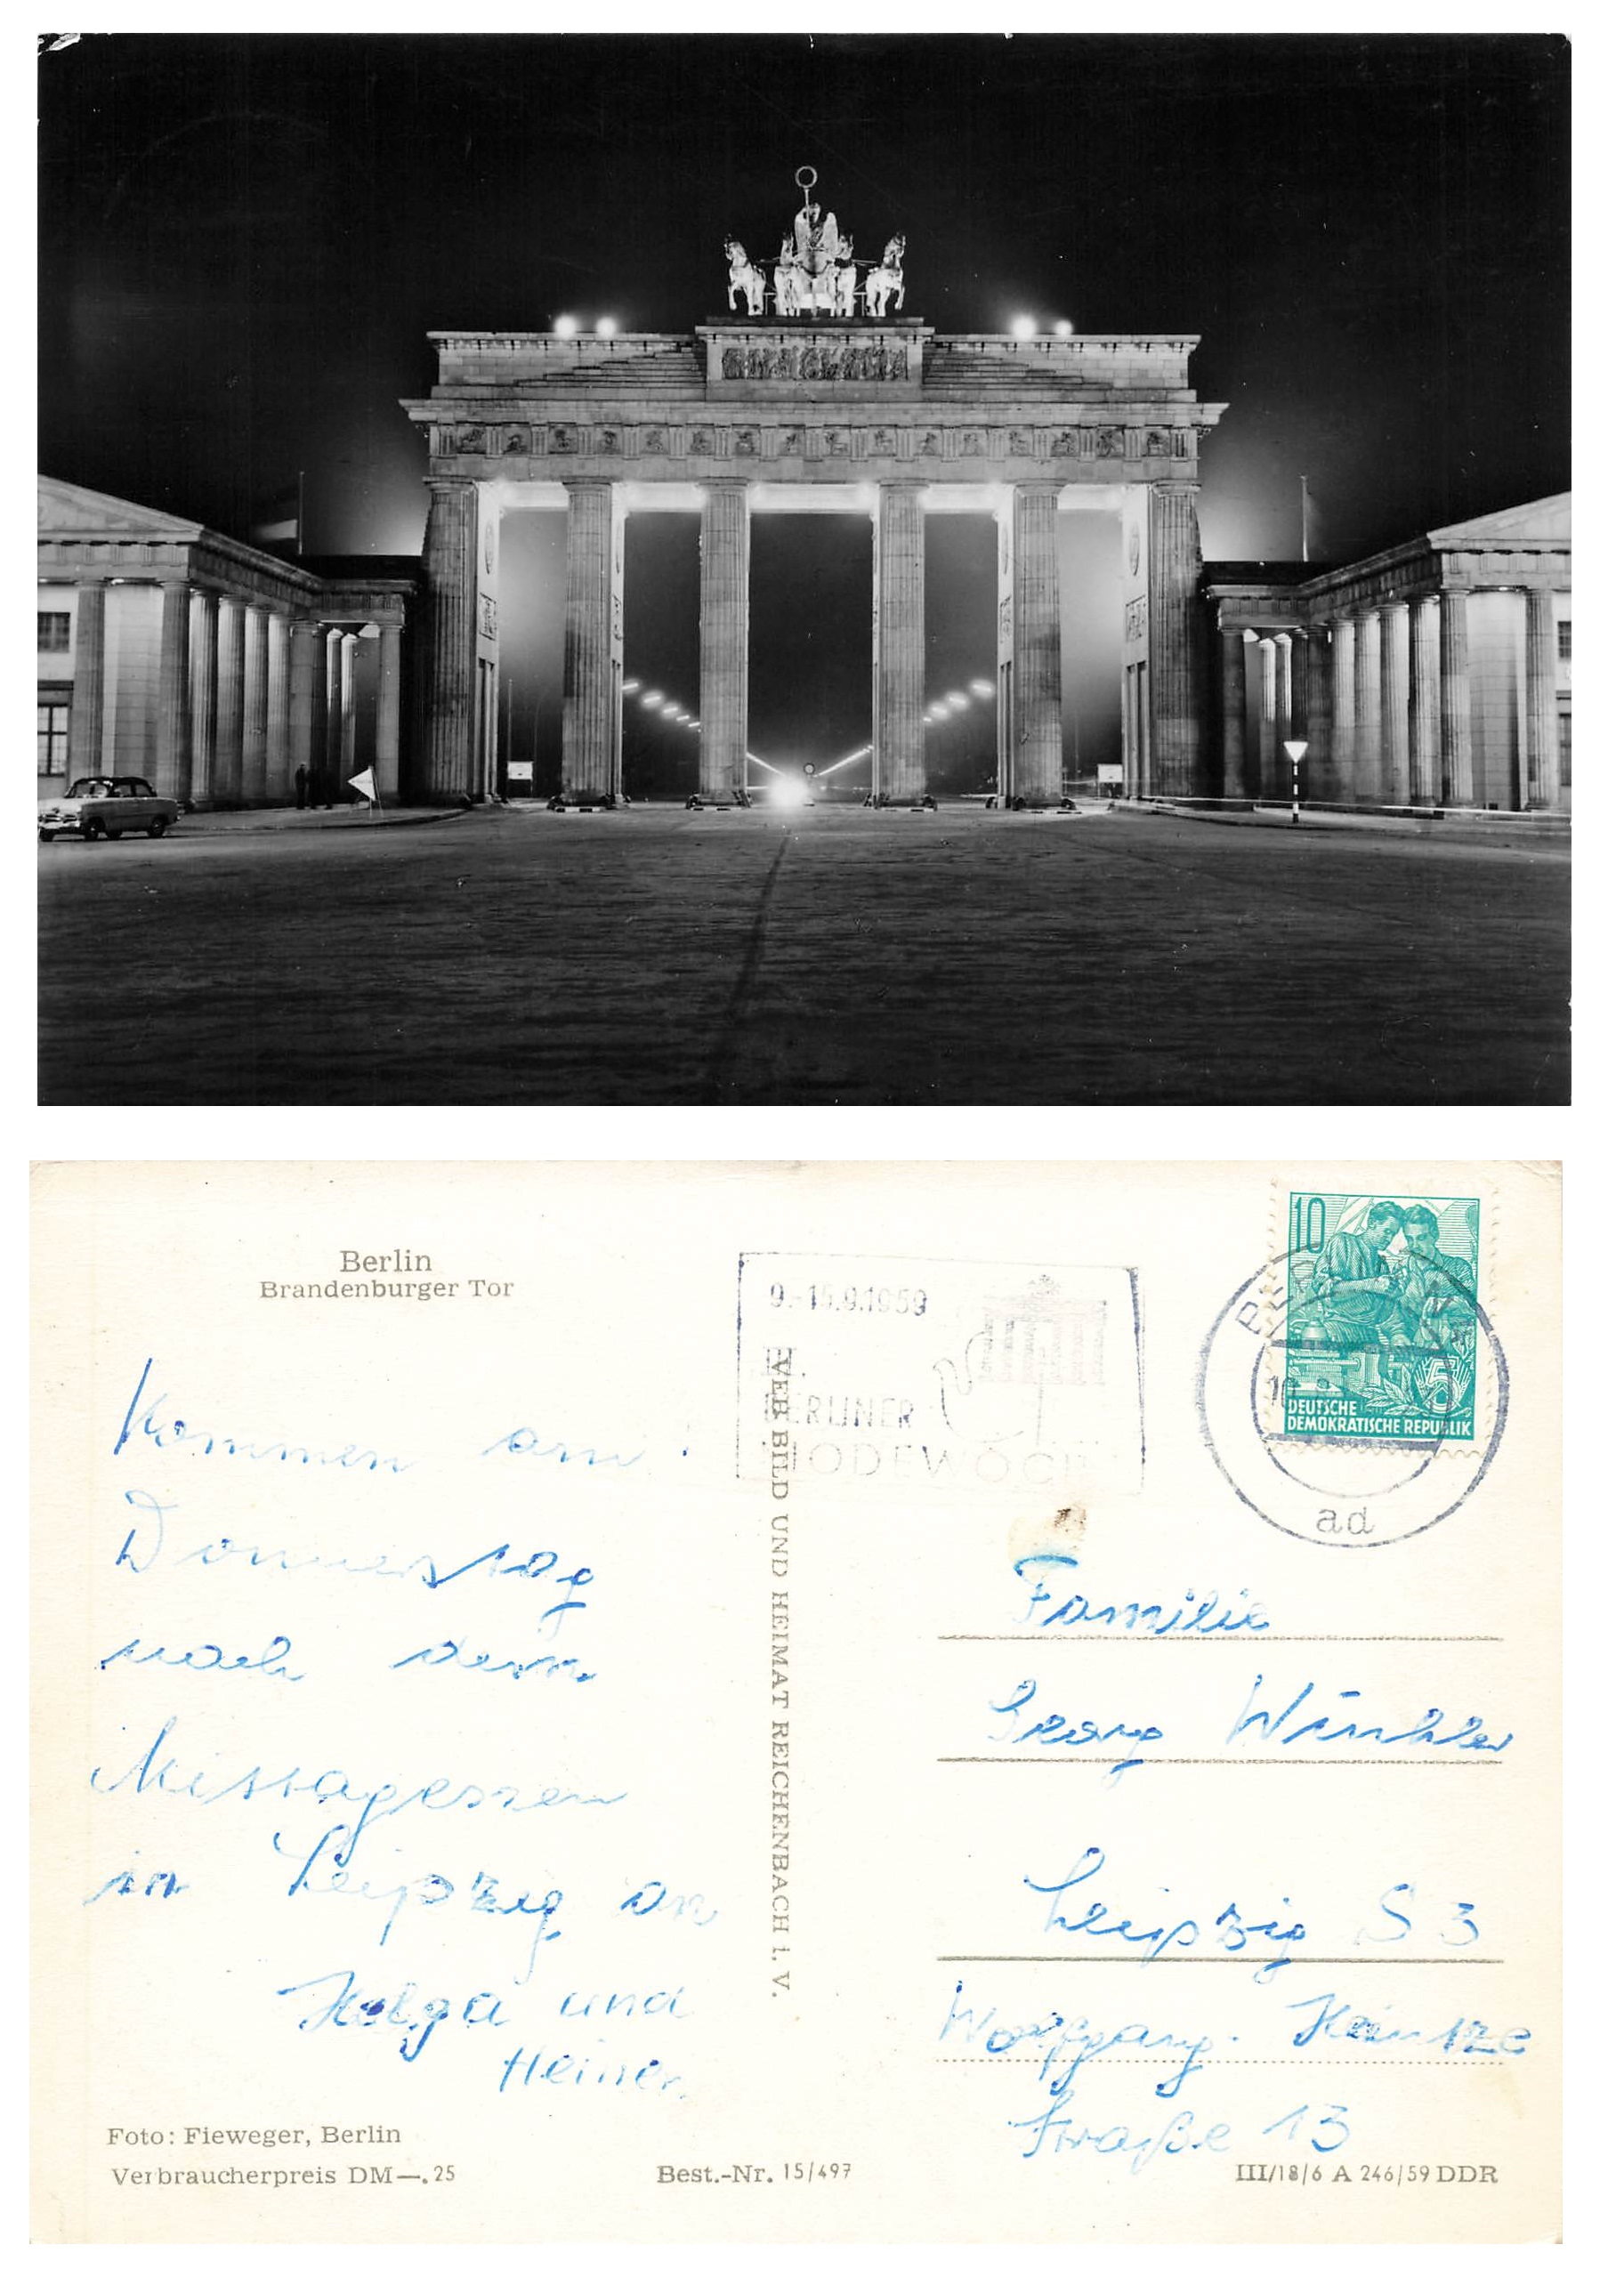 Berlin
Brandenburger Tor
Kommen am
Donnerstag
nach dem
Mittagessen
in Leipzig an
Helga und
Heiner.
Foto: Fieweger, Berlin
Verbraucherpreis DM—.25
Best.-Nr. 15/497
VEB BILD UND HEIMAT REICHENBACH i. V.
9.-15.9.1959
BERLINER
MODEWOCHE
10
DEUTSCHE
DEMOKRATISCHE REPUBLIK
5
BERLIN
ad
Familie
Georg Winkler
Leipzig S 3
Wolfgang-Heintze
Straße 13
III/18/6 A 246/59 DDR